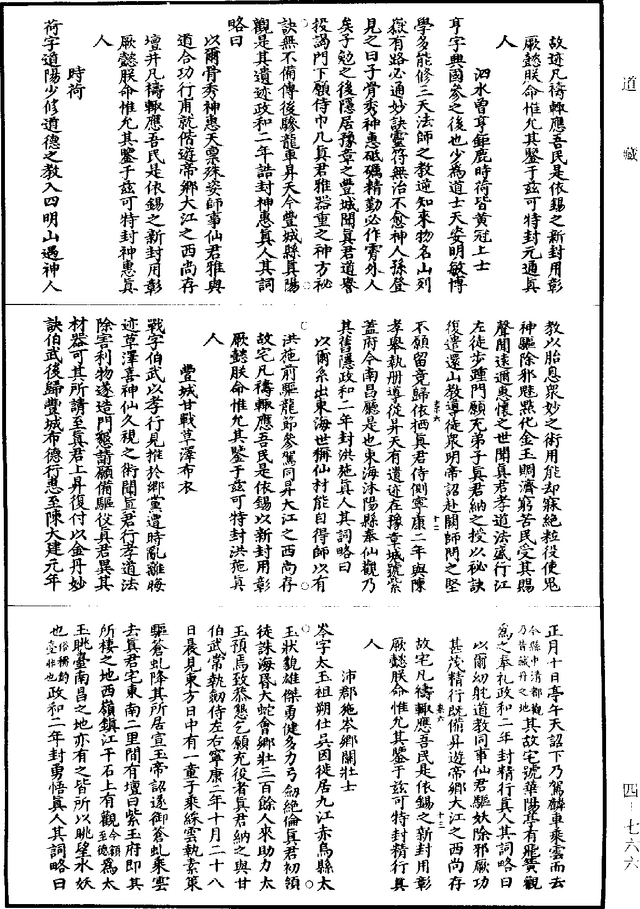 道藏
故迹凡禱輙應吾民是依錫之新封用彰
厥懿朕命惟允其鑒于兹可特封元通真
人
泗水曾亨鉅鹿時荷皆黄冠上士
亨字興國參之後也少為道士天姿明敏博
學多能修三天法師之教逆知來物名山列
嶽有路必通妙訣靈符無治不愈神人孫登
見之曰子骨秀神惠砥礪精勤必作霄外人
矣子勉之後隱居豫章之豐城聞真君道譽
投謁門下願侍巾几真君雅器重之神方祕
訣無不備傳後驂龍車昇天今豐城縣真陽
觀是其遺迹政和二年誥封神惠真人其詞
略曰
以爾骨秀神惠天禀殊姿師事仙君雅與
道合功行甫就偕遊帝鄉大江之西尚存
壇井凡禱輙應吾民是依錫之新封用彰
厥懿朕命惟允其鑒于兹可特封神惠真
人
時荷
荷字道陽少修道德之教入四明山遇神人
教以胎息衆妙之術用能却寐絶粒役使鬼
神驅除邪魅點化金玉賙濟窮苦民受其賜
聲聞遠邇惠懷之世聞真君孝道法盛行江
左徒步踵門願充弟子真君納之授以祕訣
復遣還山教導徒衆明帝詔赴闕師問之堅
不願留竟歸依栖真君侍側寧康二年與陳
孝舉執册導從昇天有遺迹在豫章城號紫
蓋府今南昌廳是也東海沭陽縣奉仙觀乃
其舊隱政和二年封洪施真人其詞略曰
以爾系出東海世稱仙村能自得師以有
洪施前驅龍節參駕同昇大江之西尚存
故宅凡禱輙應吾民是依錫以新封用彰
厥懿朕命惟允其鑒于兹可特封洪施真
人
豐城甘戰草澤布衣
戰字伯武以孝行見推於鄉黨遭時亂離晦
迹草澤喜神仙久視之術聞真君行孝道法
除害利物遂造門懇請願備驅役真君異其
材器可其所請至真君上昇復付以金丹妙
訣伯武後歸豐城布德行惠至陳大建元年
正月十日亭午天詔下乃駕麟車乘雲而去
今縣中清都觀乃昔藏丹之地其故宅號華陽亭有飛黌觀
為之奉礼政和二年封精行真人其詞略曰
以爾幼躭道教同事仙君驅妖除邪厥功
甚茂精行既備昇遊帝鄉大江之西尚存
故宅凡禱輙應吾民是依錫之新封用彰
厥懿朕命惟允其鑒于兹可特封精行真
人
沛郡施岑鄉閭壯士
岑字太玉祖朔仕吳因徙居九江赤烏縣太
玉狀貌雄傑勇健多力弓劒絶倫真君初領
徒誅海昬大蛇會鄉壯三百餘人來助力太
玉預焉致恭懇乞願充役者真君納之與甘
伯武常執劒侍左右寧康二年十月二十八
日晨見東方日中有一童子乘綵雲執素策
驅蒼虬降其所居宣玉帝詔遂御蒼虬乘雲
去真君宅東南二里間有壇曰紫玉府即其
所棲之地西嶺鎮江干石上有觀今額至德為太
玉眺臺南昌之地亦有之皆所以眺望水妖
也政和二年封勇悟真人其詞略曰
四-七六六